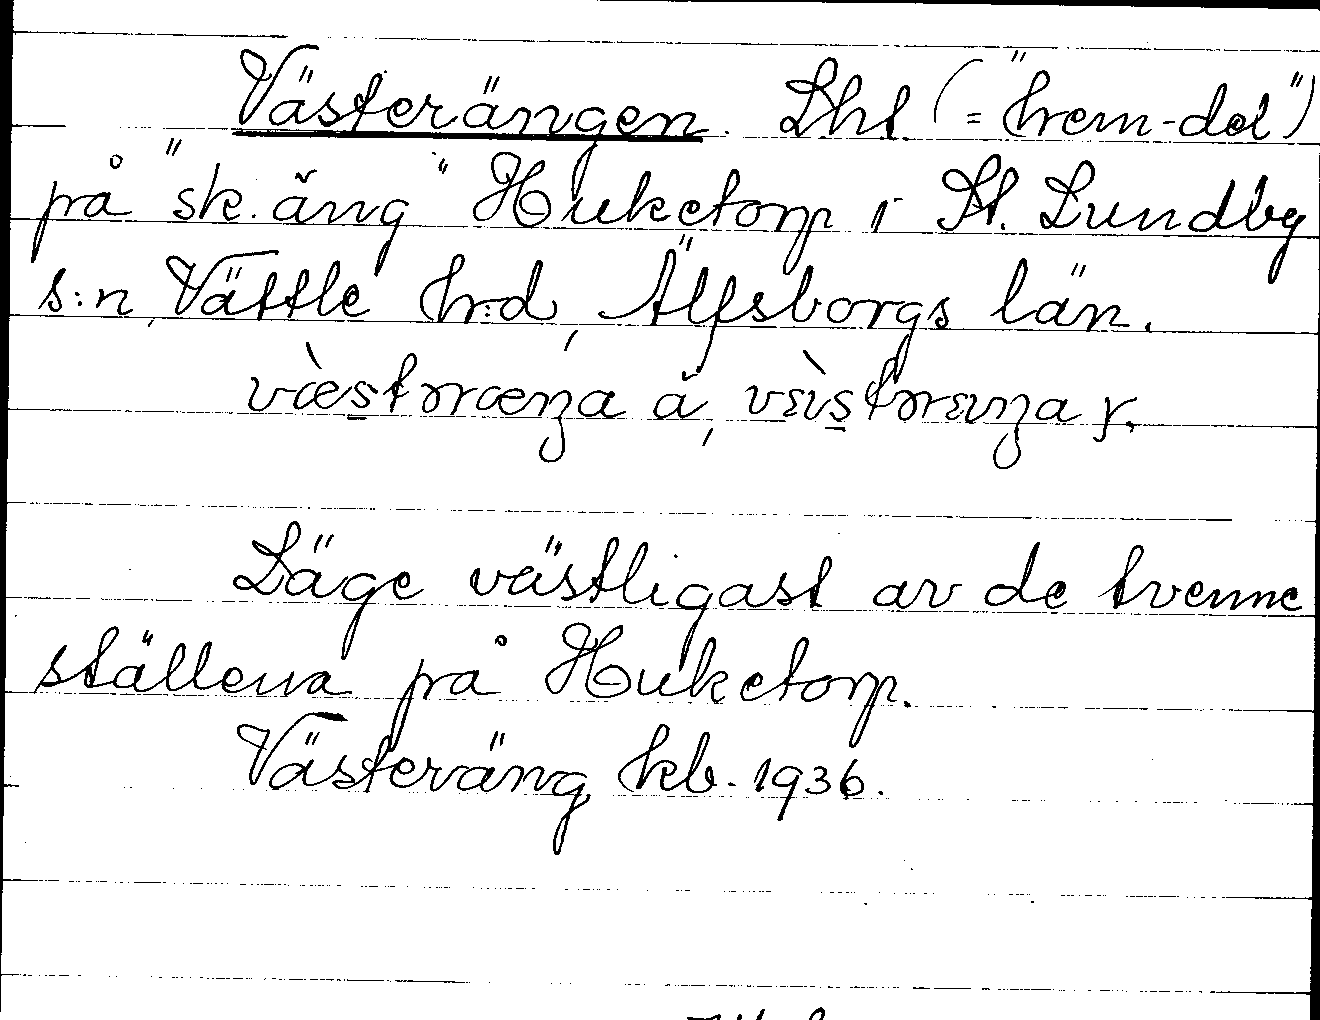 Västerängen. Lht. (= "hem-del")
på "sk. äng" Huketorp i St. Lundby
s:n, Vättle h:d, Älfsborgs län.
Läge västligast av de tvenne
ställena på Huketorp.
Västeräng kb. 1936.